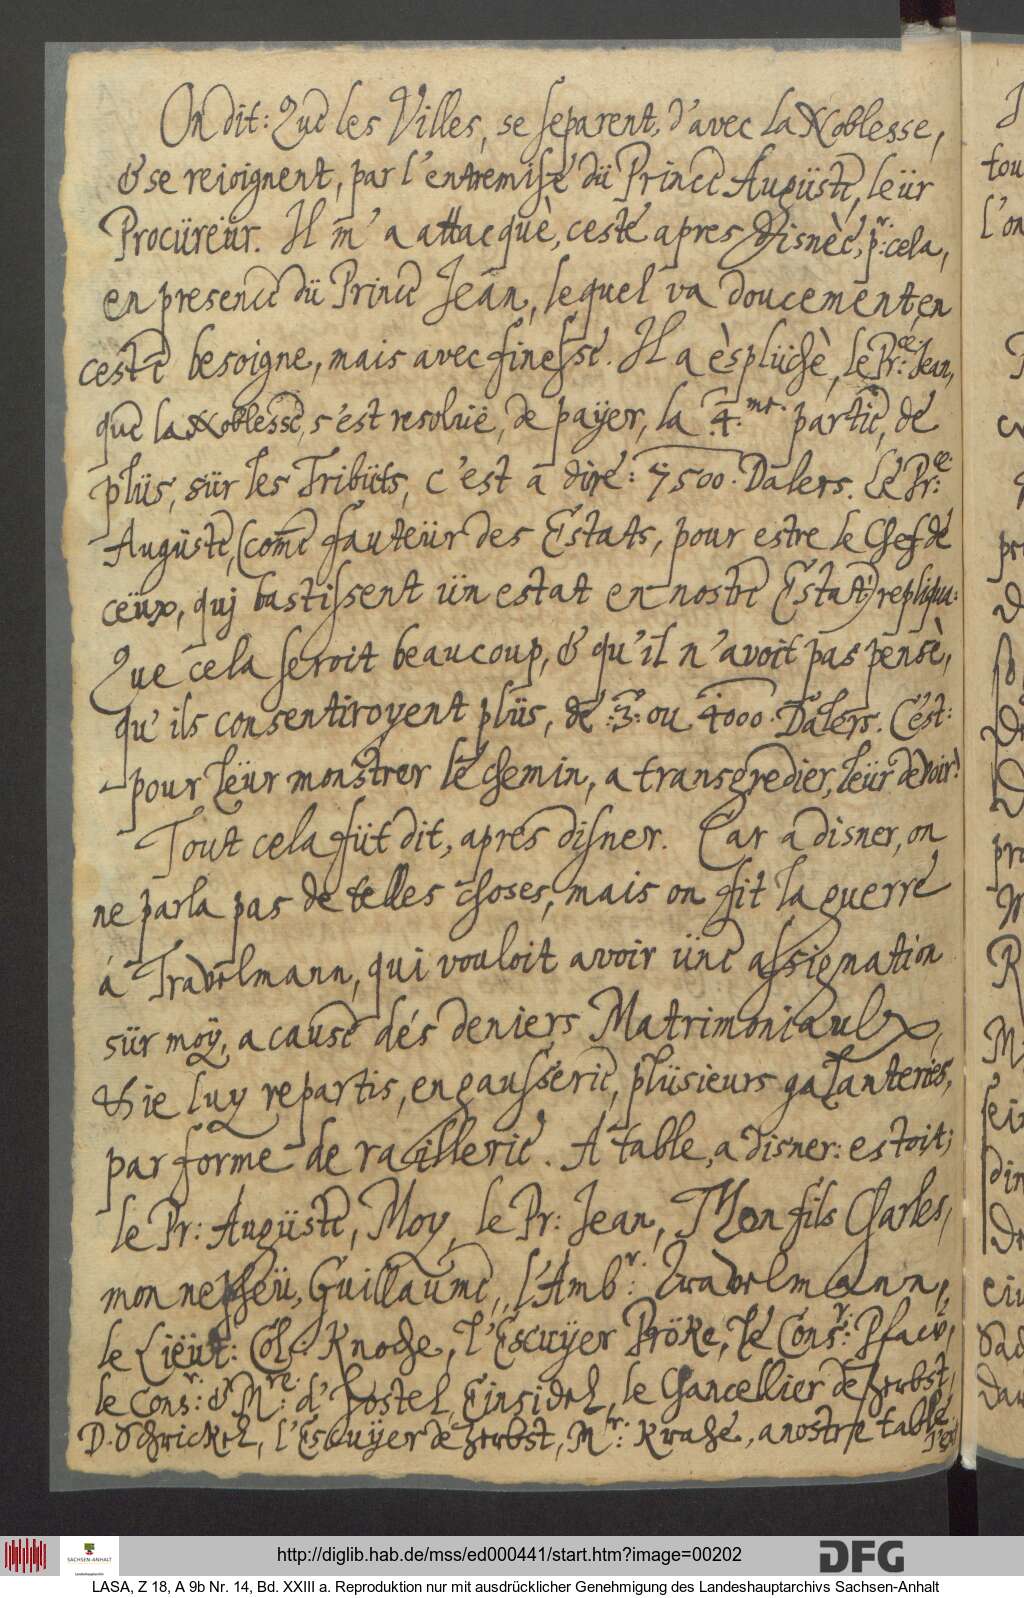 On dit: Que les Villes, se separent, d'avec la Noblesse,
& se rejoignent, par l'entremise dü Prince Augüste, leür
Procüreür. Il m'a attacquè, ceste apres disnèe, pr: cela,
en presence dü Prince Jean, lequel va doucement, en
ceste besoigne, mais avec finesse. Il a èsplüchè, le Pr:ce Jean,
que la Noblesse, s'est resolüe, de païjer, la 4.me. partie, de
plüs, sür les Tribüts, c'est a dire: 7500. Dalers. Le Pr:ce
Augüste, (come fauteür des Estats, pour estre le Chef de
ceüx, quj bastissent ün estat en nostre Estat) repliqua:
Que cela seroit beaucoup, & qu'il n'avoit pas pensè,
qu'ils consentiroyent plüs, de :3: ou 4000. Dalers. C'est:
pour leür monstrer le chemin, a transgredier, leür devoir!
Tout cela füt dit, apres disner. Car a disner, on
ne parla pas de telles choses, mais on fit la guerre
a Tradelmann, qui vouloit avoir üne assignation
sür moÿ, a cause des deniers Matrimoniaulx,
& ie luy repartis, en gausserie, plüsieurs galanteries,
par forme de raillerie. A table, a disner: estoit;
le Pr: Augüste, Moy, le Pr: Jean, Mon fils Charles,
mon nepheü, Guillaume, l'Ambr: Tradelmann,
le Lieüt: Col: Knoche, l'Escuÿer Pröke, le Consr: Pfaw,
le Consr: & Mre: d'hostel Einsidel, le Chancellier de Zerbst,
D. Schwickel, l'Escuÿer de Zerbst, Mr: Krache, a nostre table
http://diglib.hab.de/mss/ed000441/start.htm?image=00202
DFG
SACHSEN-ANHALT
LASA, Z 18, A 9b Nr. 14, Bd. XXIII a. Reproduktion nur mit ausdrücklicher Genehmigung des Landeshauptarchivs Sachsen-Anhalt